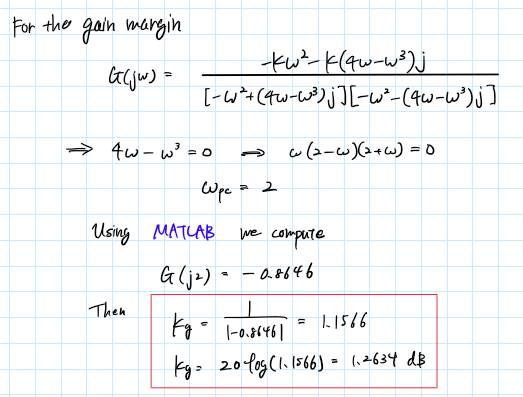 For the gain margin
G(jω) = \frac{-Kω² - K(4ω-ω³)j}{[-ω²+(4ω-ω³)j][-ω²-(4ω-ω³)j]}
⇒ 4ω - ω³ = 0 ⇒ ω(2-ω)(2+ω) = 0
ω_pc = 2
Using MATLAB we compute
G(j2) = -0.8646
Then
Kg = \frac{1}{|-0.8646|} = 1.1566
Kg = 20 log(1.1566) = 1.2634 dB